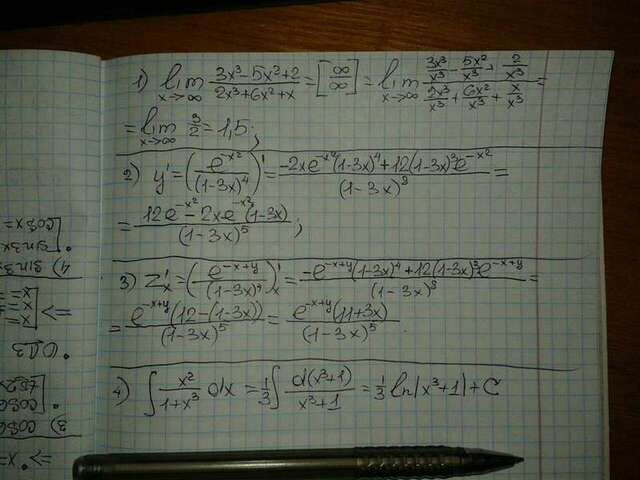 1) lim x→∞ (3x³-5x²+2)/(2x³+6x²+x) = [∞/∞] = lim x→∞ (3x³/x³ - 5x²/x³ + 2/x³)/(2x³/x³ + 6x²/x³ + x/x³) =
= lim x→∞ 3/2 = 1,5;
2) y' = (e^(-x²)/(1-3x)⁴)' = (-2xe^(-x²)(1-3x)⁴+12(1-3x)³e^(-x²))/(1-3x)⁸ =
= (12e^(-x²)-2xe^(-x²)(1-3x))/(1-3x)⁵;
3) z'ₓ = (e^(-x+y)/(1-3x)⁴)'ₓ = (-e^(-x+y)(1-3x)⁴+12(1-3x)³e^(-x+y))/(1-3x)⁸ =
= (e^(-x+y)(12-(1-3x)))/(1-3x)⁵ = (e^(-x+y)(11+3x))/(1-3x)⁵.
4) ∫ x²/(1+x³) dx = 1/3 ∫ d(x³+1)/(x³+1) = 1/3 ln|x³+1| + C
3) cos6
4) sin3
sin3x
cosx=